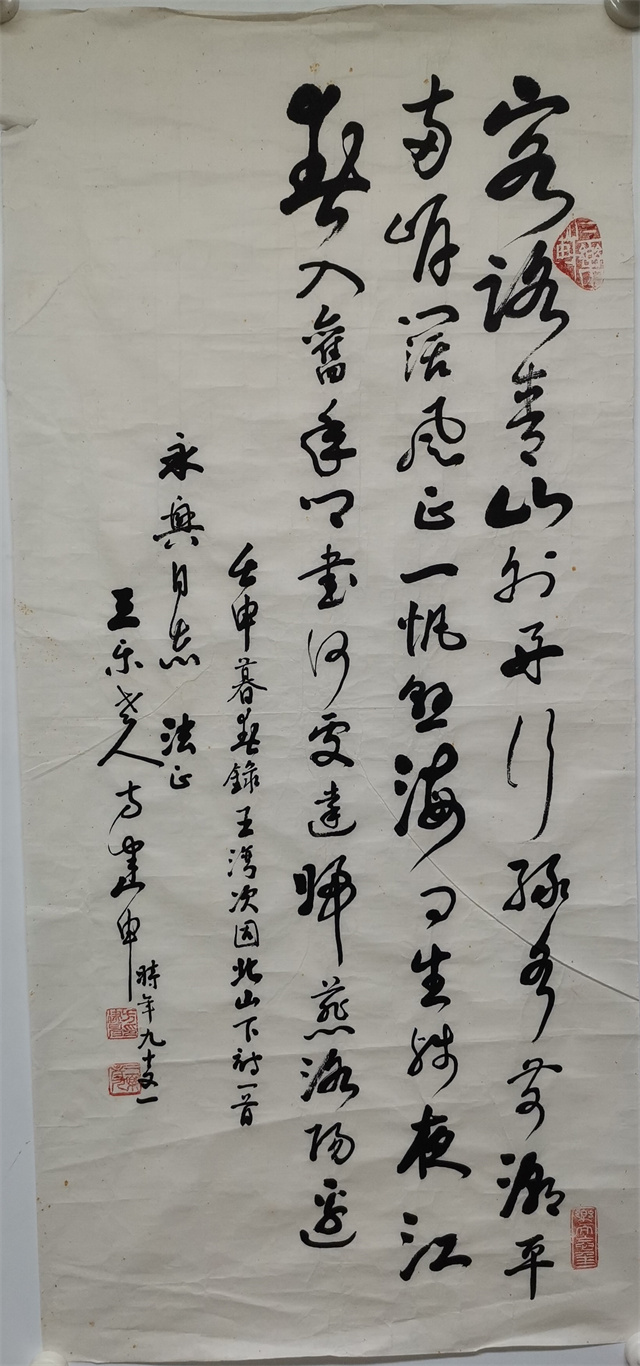 客路青山外舟行綠水前潮平
兩岸闊風正一帆懸海日生殘夜江
春入舊年鄉書何處達歸燕洛陽邊
壬申暮春錄王灣次固北山下詩一首
永興同志 法正
三樂老人 方 申 時年九十又一
三樂軒